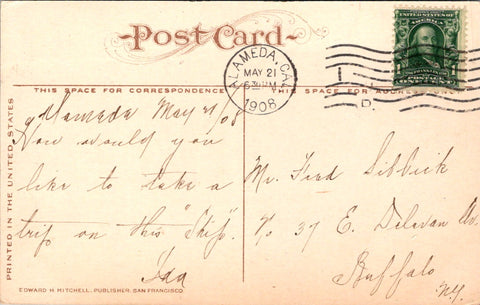 Post Card.
ALAMEDA, CAL.
MAY 21
6 30 PM
1908
D.
UNITED STATES OF AMERICA
THIS SPACE FOR CORRESPONDENCE
THIS SPACE FOR ADDRESS
PRINTED IN THE UNITED STATES
Alameda May 21/08
How would you
like to take a
trip on this "Ship".
Ida
Mr. Fred Sibbick
℅ 37 E. Delavan Av.
Buffalo
N.Y.
EDWARD H MITCHELL, PUBLISHER, SAN FRANCISCO